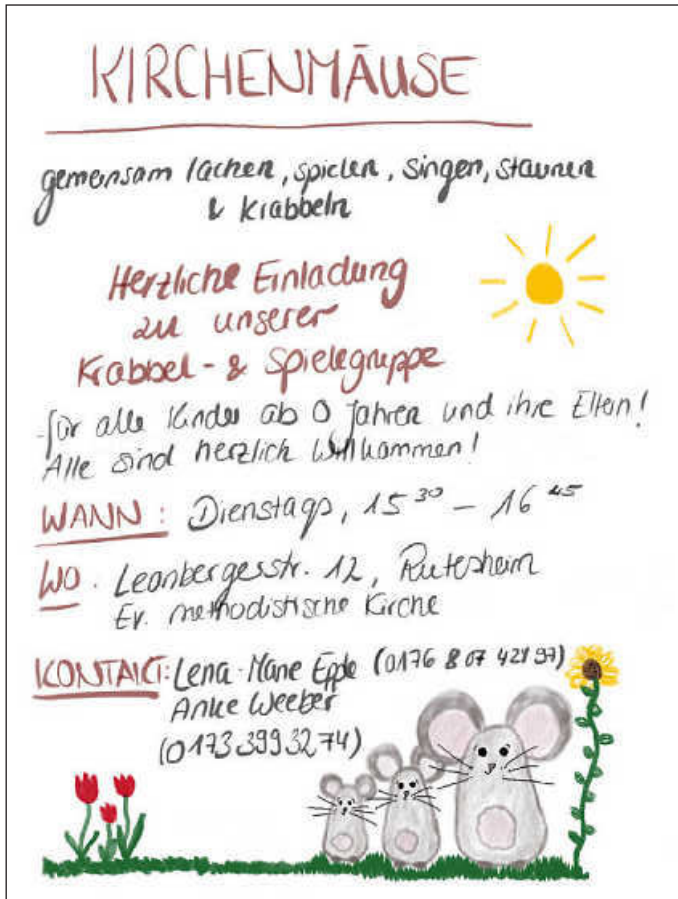 KIRCHENMÄUSE
gemeinsam lachen, spielen, singen, staunen
& krabbeln
Herzliche Einladung
zu unserer
Krabbel- & Spielegruppe
für alle Kinder ab 0 Jahren und ihre Eltern!
Alle sind herzlich Willkommen!
WANN: Dienstags, 15³⁰ - 16⁴⁵
WO: Leonbergerstr. 12, Rutesheim
Ev. methodistische Kirche
KONTAKT: Lena-Marie Epple (0176 807 421 97)
Anke Weeber
(0173 399 32 74)